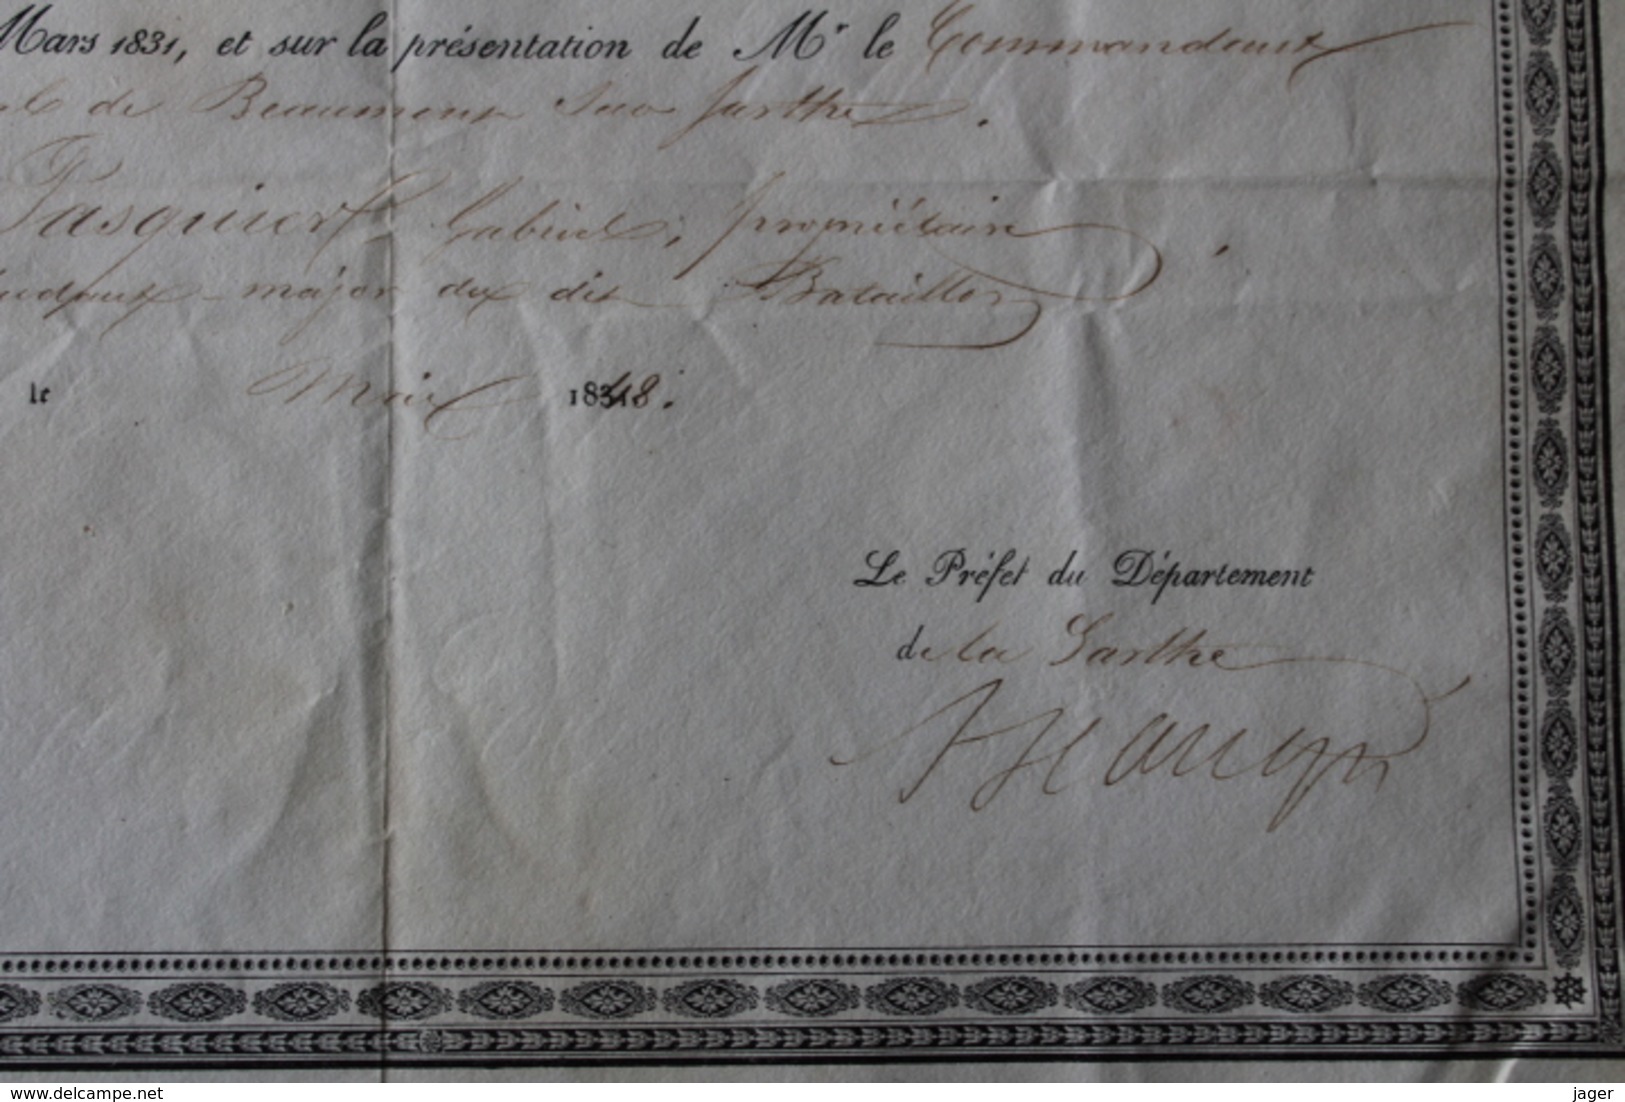 Mars 1831, et sur la présentation de Mr le Commandant
de Beaumont Sur Sarthe.
Pasquier Gabriel, propriétaire,
major du dit Bataillon
le Mai 1848.
Le Préfet du Département
de la Sarthe
delcampe.net
jager